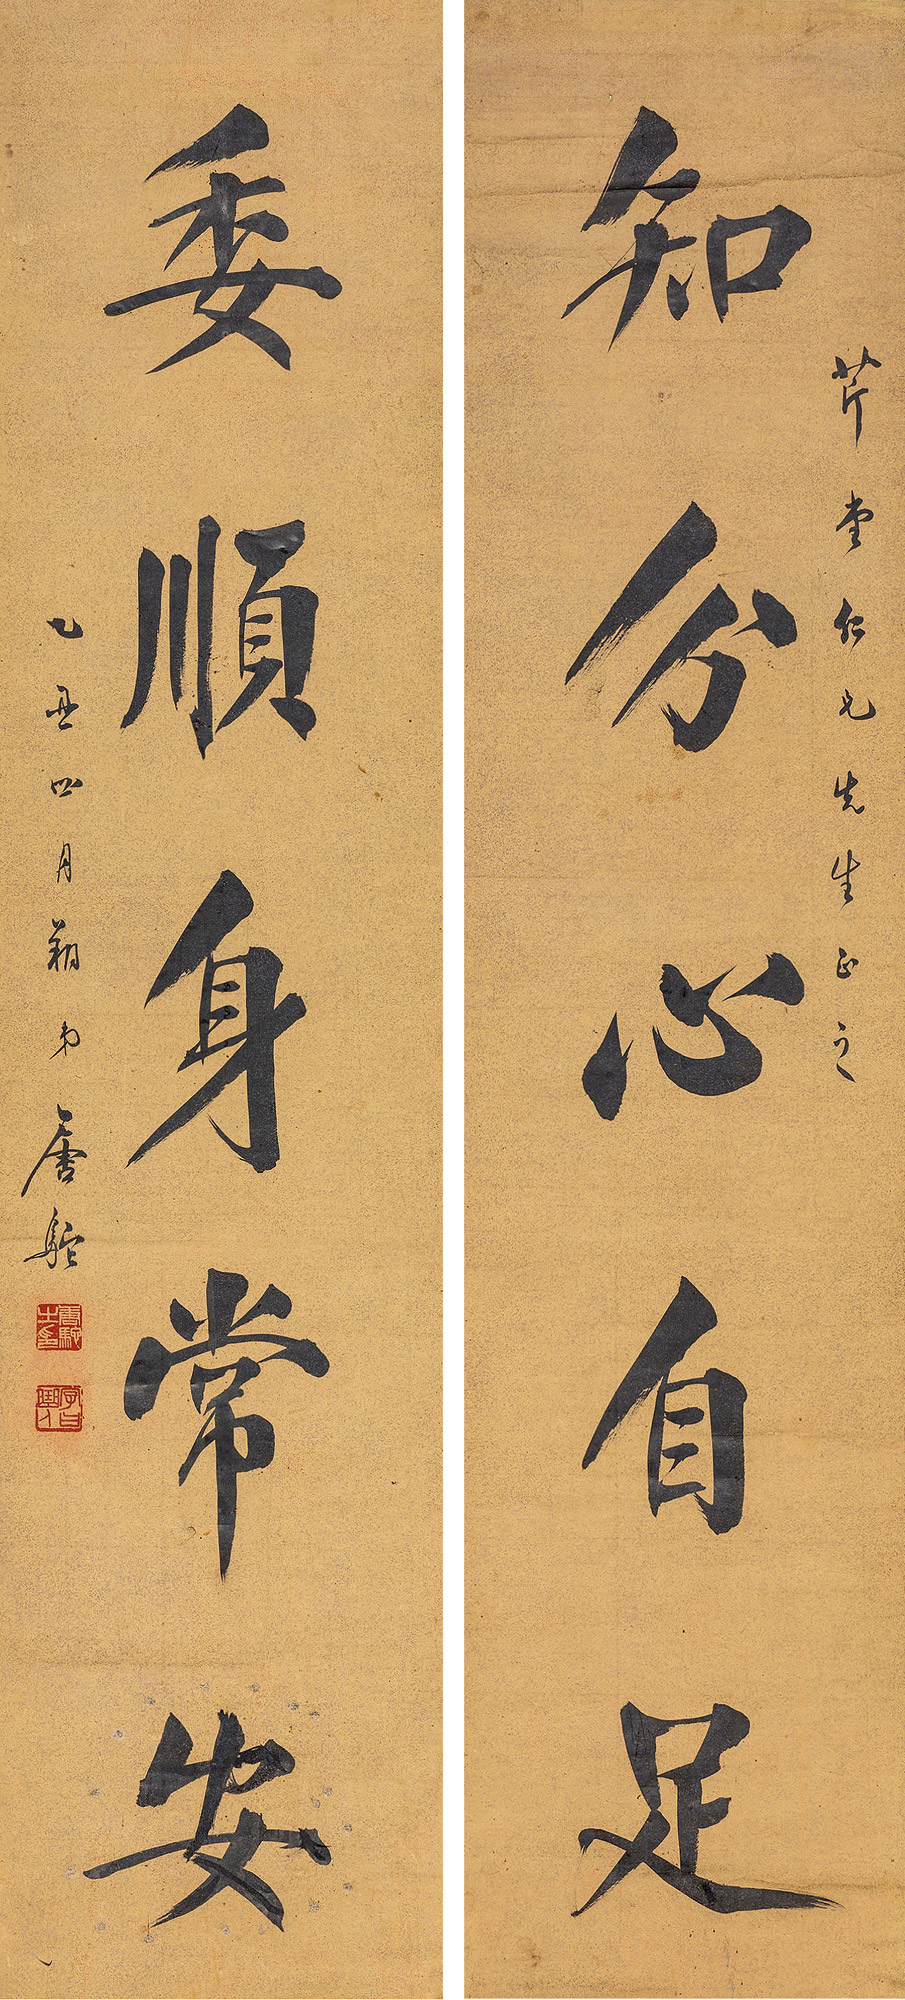 芹堂仁兄先生正之
知分心自足
委順身常安
乙丑四月朔弟唐駝
唐駝之印